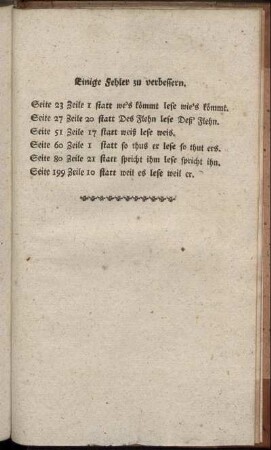 Einige Fehler zu verbessern.
Seite 23 Zeile 1 statt we's kömmt lese wie's kömmt.
Seite 27 Zeile 20 statt Des Flehn lese Deß' Flehn.
Seite 51 Zeile 17 statt weiß lese weis.
Seite 60 Zeile 1 statt so thus er lese so thut ers.
Seite 80 Zeile 21 statt spricht ihm lese spricht ihn.
Seite 199 Zeile 10 statt weil es lese weil er.